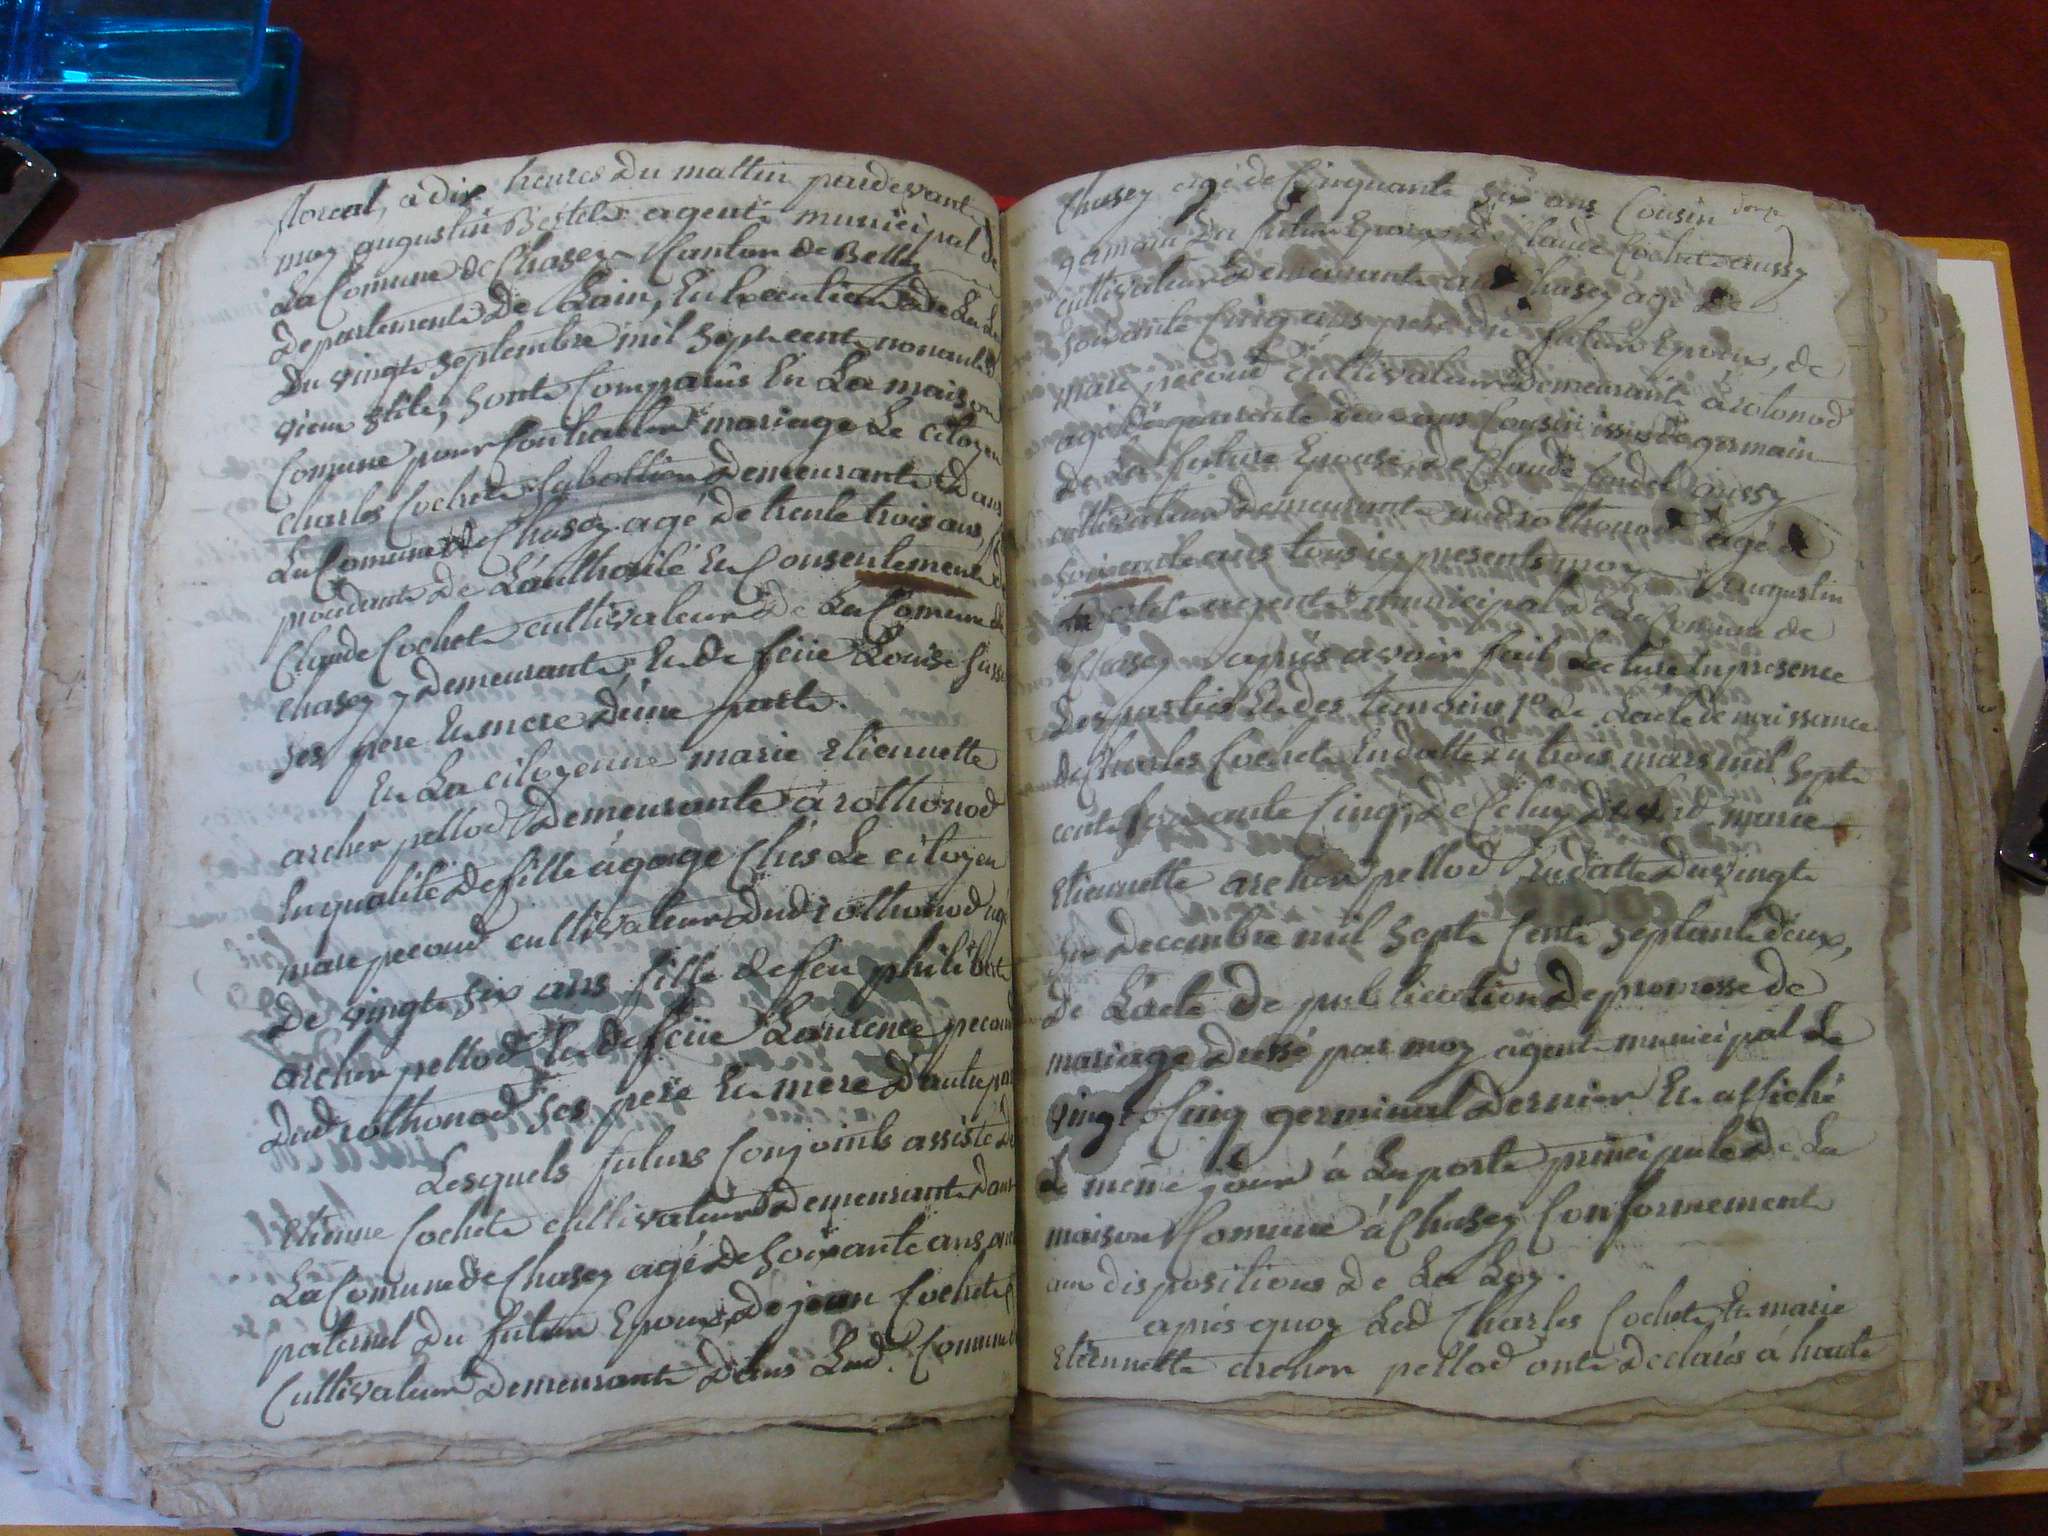 floreal, à dix heures du mattin pardevant
moy augustin Bestel agent municipal de
La Comune de Chasey Canton de Belley
departement De Lain, En Execution de La Loi
Du vingt septembre mil sept cent nonante
vieux stile, sont Comparûs En La maison
Comune pour Contracter mariage Le citoyen
charles Cochet Laboureur demeurant dans
La Comune de Chasey agé de trente trois ans,
procedant de L'authorité Et Consentement de
Claude Cochet cultivateur de La Comune de
chasey y demeurant, Et de feüe Louise
ses pere Et mere d'une part.
Et La citoyenne marie Etiennette
archer pellod demeurante à rothonod
En qualité de fille à gage Chés Le citoyen
marc pecoud cultivateur dud rothonod agé
De vingt six ans fille de feu philibert
archer pellod Et de feüe Laurence pecoud
Dud rothonod ses pere Et mere D'autre part
Lesquels futurs Conjoints assisté de
Etienne Cochet cultivateur demeurant dans
La Comune de Chasey agé de soixante ans
paternel du futur Epoux, de jean Cochet
Cultivateur demeurant dans Lad. Comune
Chasey agé de Cinquante six ans Cousin
germain du futur Epoux, de Claude Cochet aussy
cultivateur demeurant aud Chasey agé de
soixante Cinq ans pere du futur Epoux, de
marc pecoud cultivateur demeurant à rotonod
agé de quarente deux ans Cousin issu de germain
de La future Epouse, de Claude aussy
cultivateur demeurant aud rothonod agé de
soixante ans tous icy presents moy augustin
Bestel agent municipal de La Comune de
Chasey après avoir fait Lecture En presence
Des parties Et des temoins 1o de L'acte de naissance
de Charles Cochet En datte du trois mars mil sept
cent soixante Cinq, de Celuy de lad marie
Etiennette archer pellod En datte du vingt
six decembre mil sept Cent septante deux,
de L'acte de publication de promesse de
mariage dressé par moy agent municipal Le
vingt Cinq germinal dernier Et affiché
Le même jour à La porte principale de La
maison Comune à Chasey Conformement
aux dispositions de La Loy.
après quoy Led Charles Cochet Et marie
Etiennette archer pellod ont declarés à haute